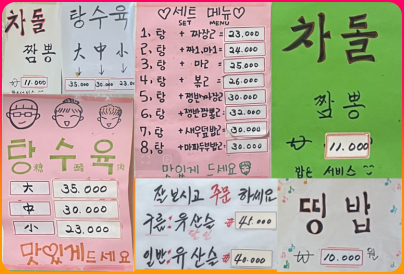 차돌
짬뽕
₩ 11.000
탕수육
大 中 小
35.000 30.000 23.0
탕수육
大 35.000
中 30.000
小 23.000
맛있게드세요
♡세트 메뉴♡
SET MENU
1, 탕 + 짜장2 = 23.000
2, 탕 + 짜1.마1 = 24.000
3, 탕 + 마2 = 25.000
4, 탕 + 볶2 = 26.000
5, 탕 + 쟁반짜장2 = 30.000
6, 탕 + 쟁반짬뽕2 = 32.000
7, 탕 + 새우덮밥2 = 30.000
8, 탕 + 마파두부밥2 = 30.000
맛있게 드세요
잘 보시고 주문 하세요
구룸: 유산슬 45.000
일반: 유산슬 40.000
차돌
짬뽕
₩ 11.000
밥은 서비스
띵 밥
₩ 10.000 원